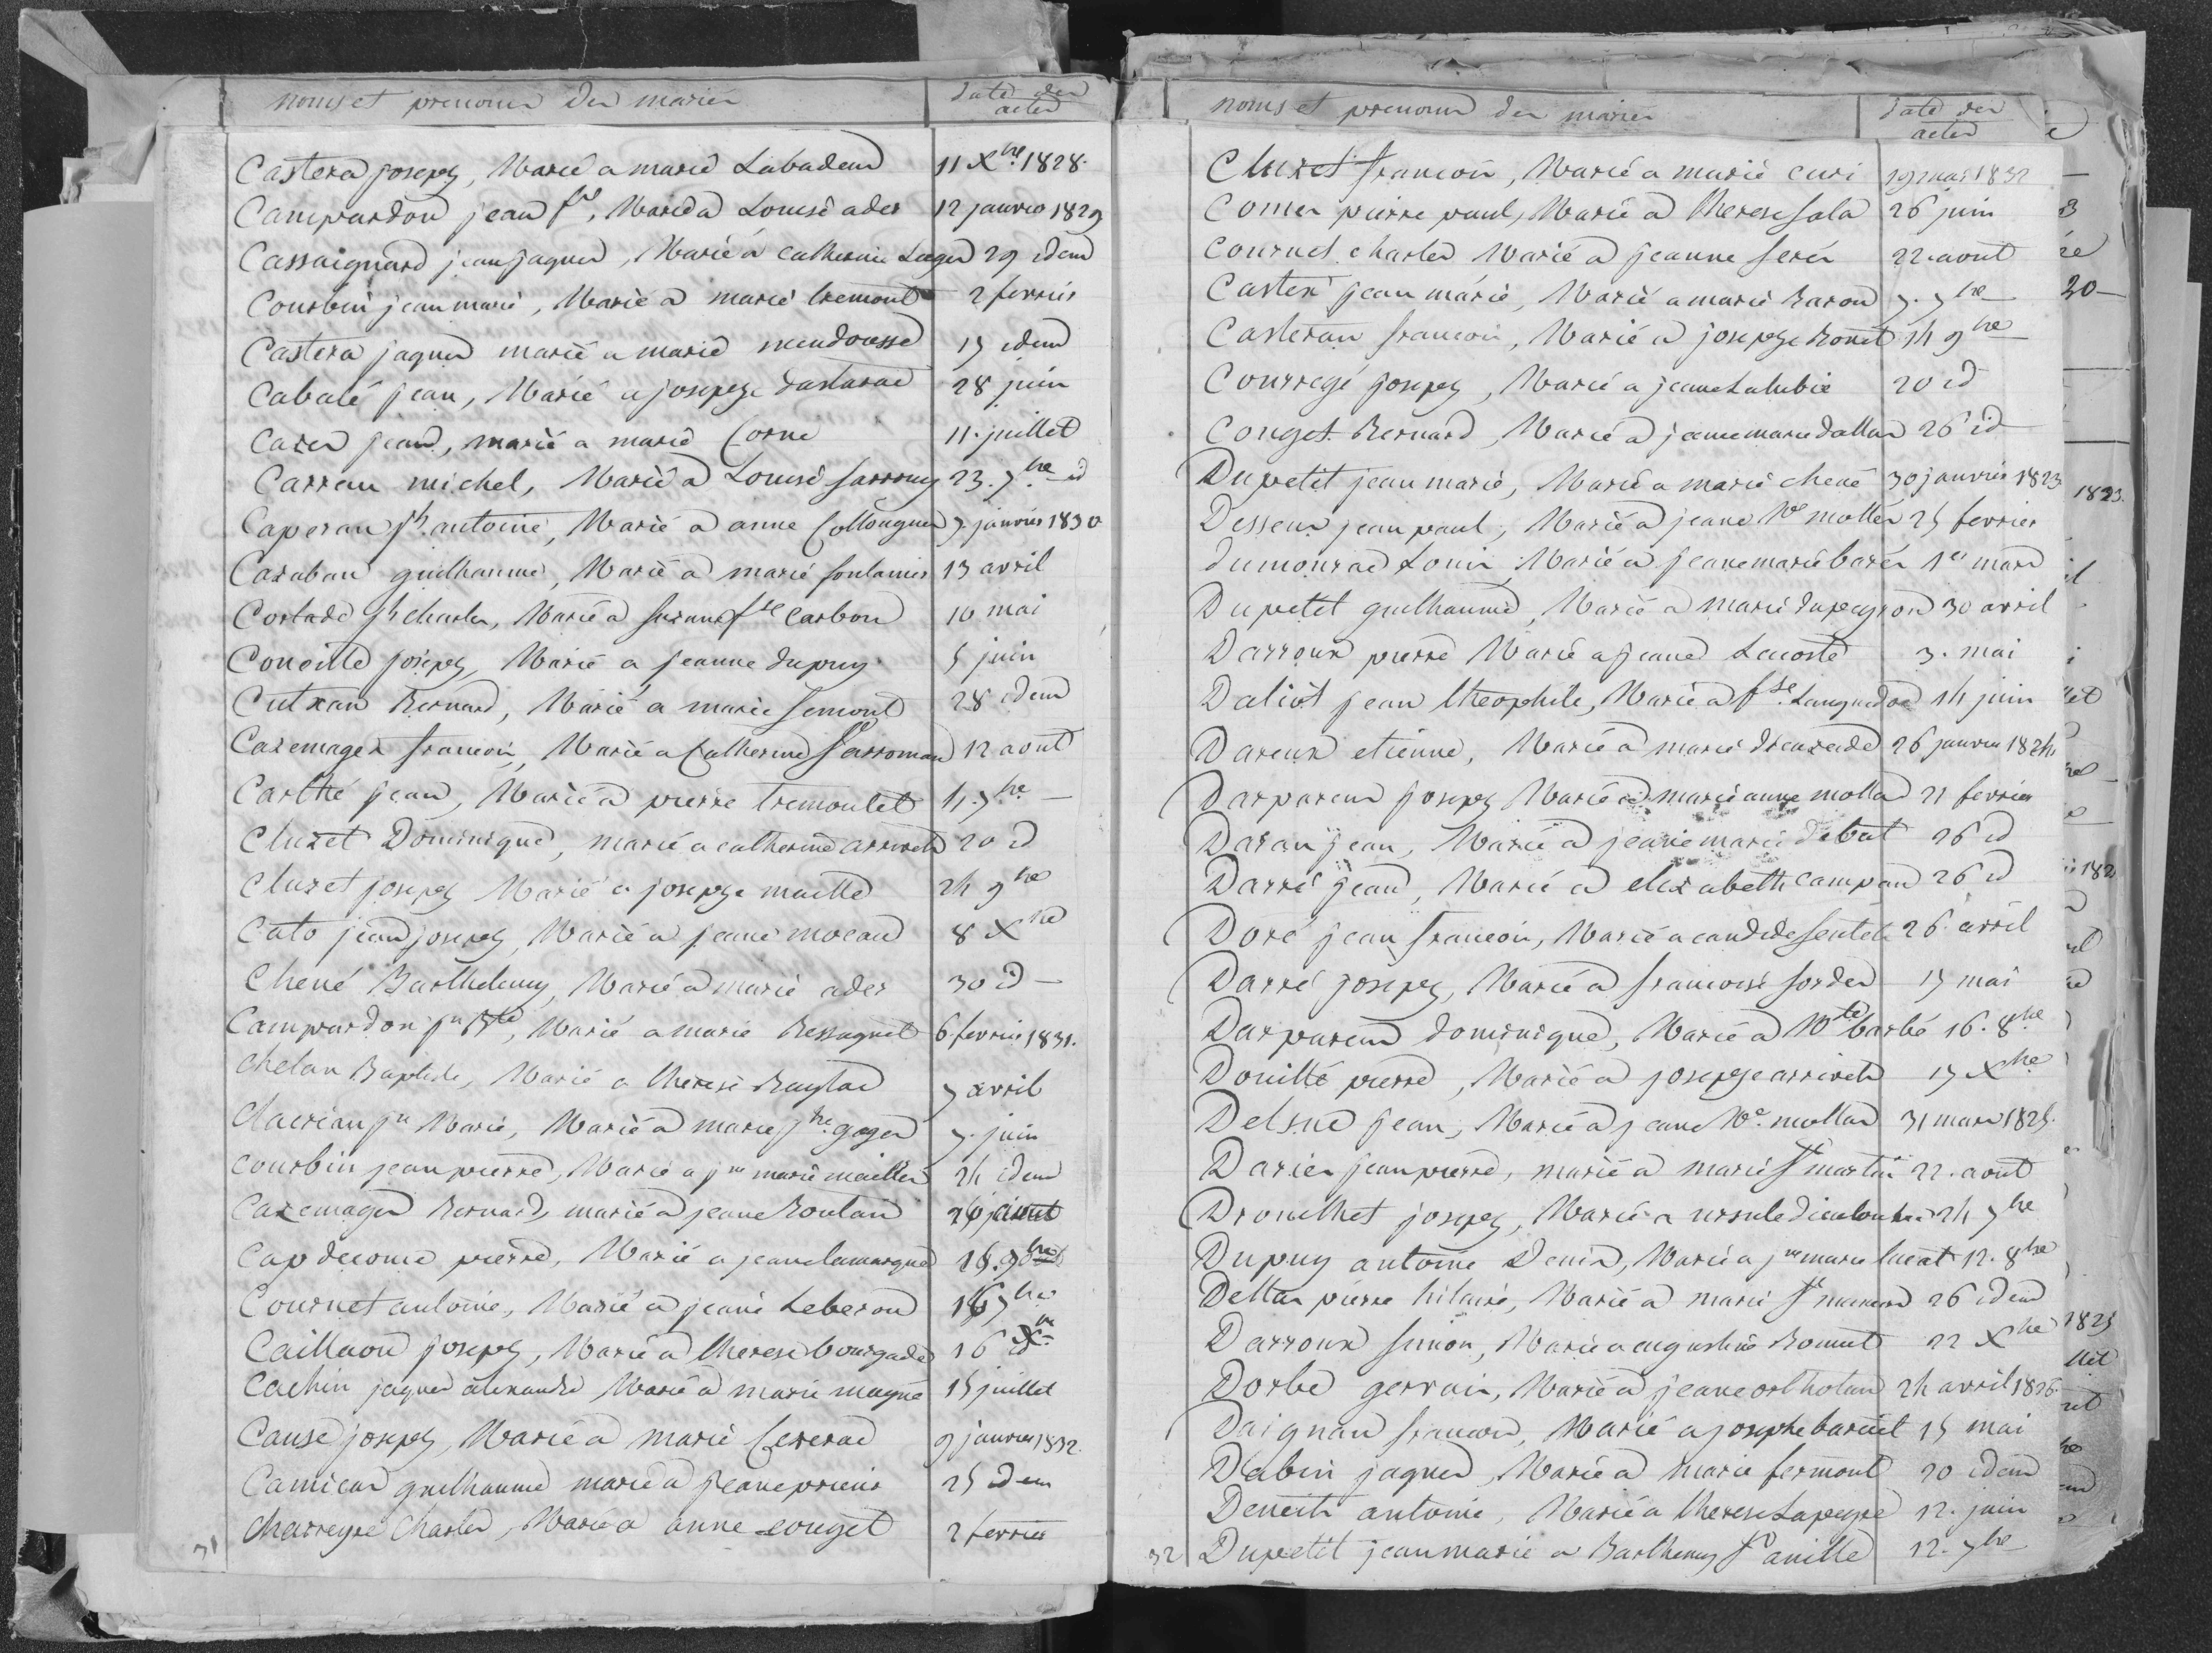 noms et prenoms des mariés
date des actes
Castera joseph, Marié a marie Labadens 11 Xbre 1828.
Campardon jean fs, Marié a Louise ader 12 janvier 1829
Cassaignard jean jaques, Marié a catherine Lages 29 idem
Courbin jean marie, Marié a marie tremont 2 fevrier
Castera jaques marié a marie mendousse 15 idem
Cabalé jean, Marié a josephe dastarac 28 juin
Cazes jean, marié a marie Corne 11. juillet
Carreau michel, Marié a Louise sarrouy 23. 7bre id
Caperan ph antoine, Marié a anne Collongues 7 janvier 1830
Cazaban guilhaume, Marié a marie soulanier 13 avril
Cortade ph charles, Marié a suzane fse carbon 10 mai
Conoille joseph, Marié a jeanne dupuy 5 juin
Cutxan Bernard, Marié a marie semont 28 idem
Cazemages francois, Marié a Catherine Sarroman 12 aout
Carthé jean, Marié a pierre tremoulet 15. 7bre
Cluzet Dominique, marié a catherine arrivets 20 id
Cluzet joseph Marié a josephe maille 24 9bre
Cato jean joseph, Marié a jeane moean 8 Xbre
Chené Barthelemy, Marié a marie ader 30 id
Campardon jn Bte, Marié a marie Ressaguet 6 fevrier 1831.
Chelan Baptiste, Marié a therese Baylac 7 avril
Clacrian jn Marie, Marié a marie jne gages 7. juin
courbin jean pierre, Marié a jne marie mailles 24 idem
Cazemages Bernard, marié a jeane Boutan
Capdecome pierre, Marié a jeane lamarque
Cournet antoine, Marié a jeane Leberon 16 7bre
Caillaou joseph, Marié a therese bourgade 16
Cachin jaques alexandre Marié a marie magne 15 juillet
Cause joseph, Marié a marie Cezerac 9 janvier 1832.
Camicas guilhaume marié a jeane prieur 25 idem
charreyre Charles, Marié a anne couget 2 fevrier
31
noms et prenoms des mariés
date des actes
Cluzet francois, Marié a marie curi 19 mars 1832
Comes pierre paul, Marié a therese sala 26 juin
Cournet charles Marié a jeanne serés 22. aout
Castex jean marie, Marié a marie Baron 7. 7bre
Casteran francois, Marié a josephe Bonet 14 9bre
Courrege joseph, Marié a jeane Lalubie 20 id
Couget Bernard, Marié a jeane marie dallas 26 id
Dupetit jean marie, Marié a marie chené 30 janvier 1823
Desseux jean paul, Marié a jeane Ve molles 25 fevrier
dumourac Louis Marié a jeane marie barés 1er mars
Dupetit guilhaume, Marié a marie dupeyron 30 avril
Darroux pierre Marié a jeane Lacoste 3. mai
Daliot jean theophile, Marié a fse Languedoc 14 juin
Dareux etienne, Marié a marie 26 janvier 1824
Darparens joseph Marié a marie anne mollas 21 fevrier
Daran jean, Marié a jeane marie debat 26 id
Darré jean, Marié a elizabeth campan 26 id
Doré jean francois, Marié a candide sentets 26 avril
Darré joseph, Marié a francoise sordes 15 mai
Darparens dominique, Marié a Vte barbé 16. 8bre
Douillé pierre, Marié a josephe arrivets 17 Xbre
Delsuc jean, Marié a jeane Ve mollas 31 mars 1825.
Daries jean pierre, marié a marie St martin 22. aout
Drouilhet joseph, Marié a ursule 24 7bre
Dupuy antoine Denis, Marié a jne marie lucat 12. 8bre
Dellas pierre hilaire, Marié a marie 26 idem
Darroux simon, Marié a augustine Bonnet 22 Xbre
Dorbe gervais, Marié a jeane ortholan 24 avril 1826.
Daignan francois, Marié a josephe baruit 15 mai
Dabin jaques, Marié a marie fermont 20 idem
Deneits antoine, Marié a therese Lapeyre 12. juin
Dupetit jean marie a Barthemy fo anille 12. 7bre
32